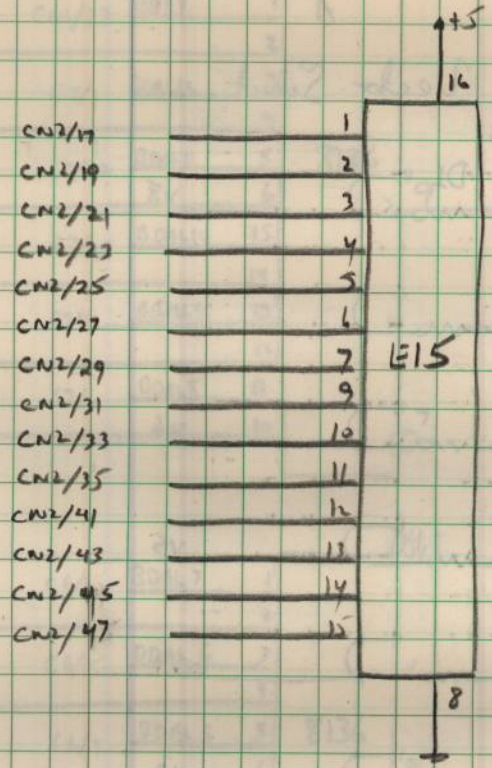 +5
16
CN2/17 1
CN2/19 2
CN2/21 3
CN2/23 4
CN2/25 5
CN2/27 6
CN2/29 7
E15
CN2/31 9
CN2/33 10
CN2/35 11
CN2/41 12
CN2/43 13
CN2/45 14
CN2/47 15
8